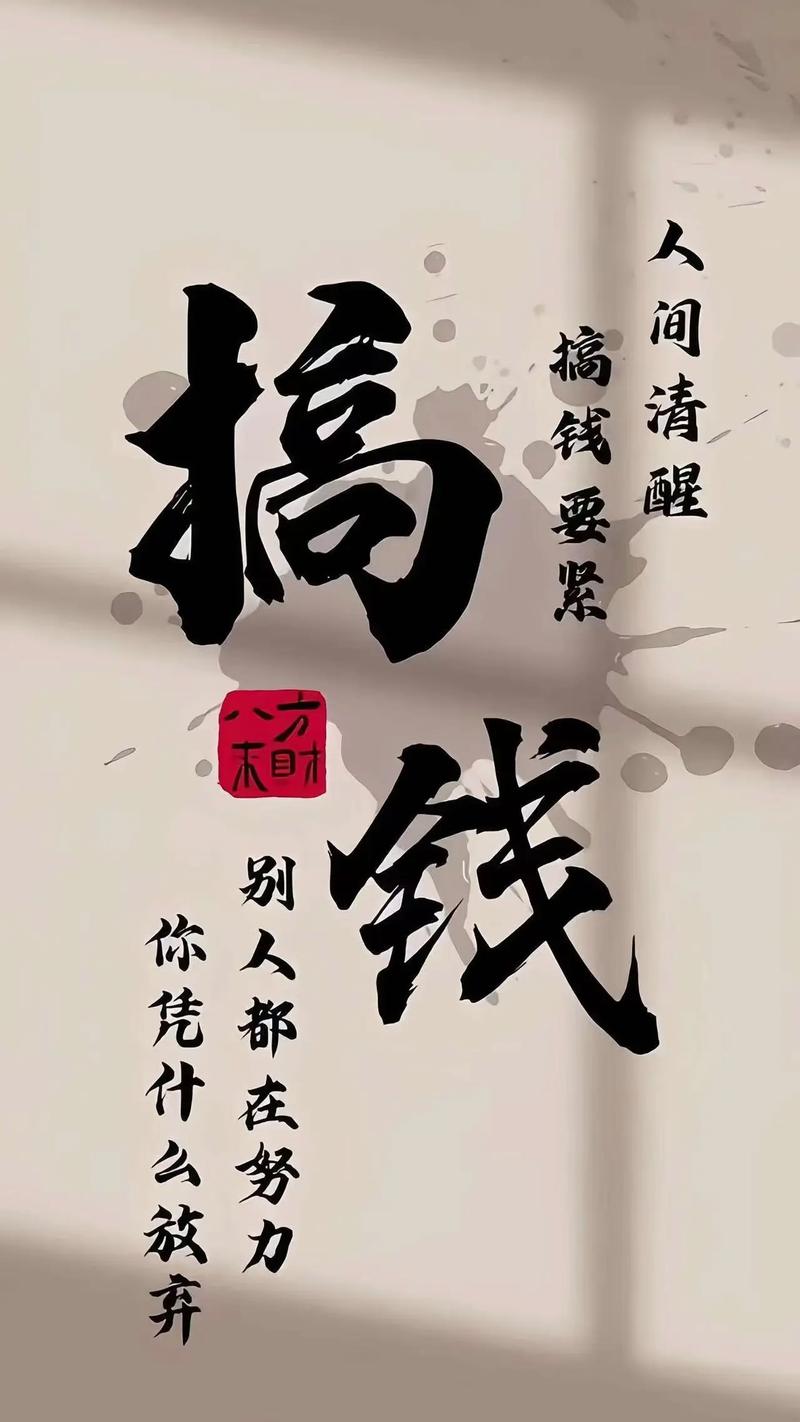 人间清醒
搞钱要紧
搞
钱
八方
来财
别人都在努力
你凭什么放弃